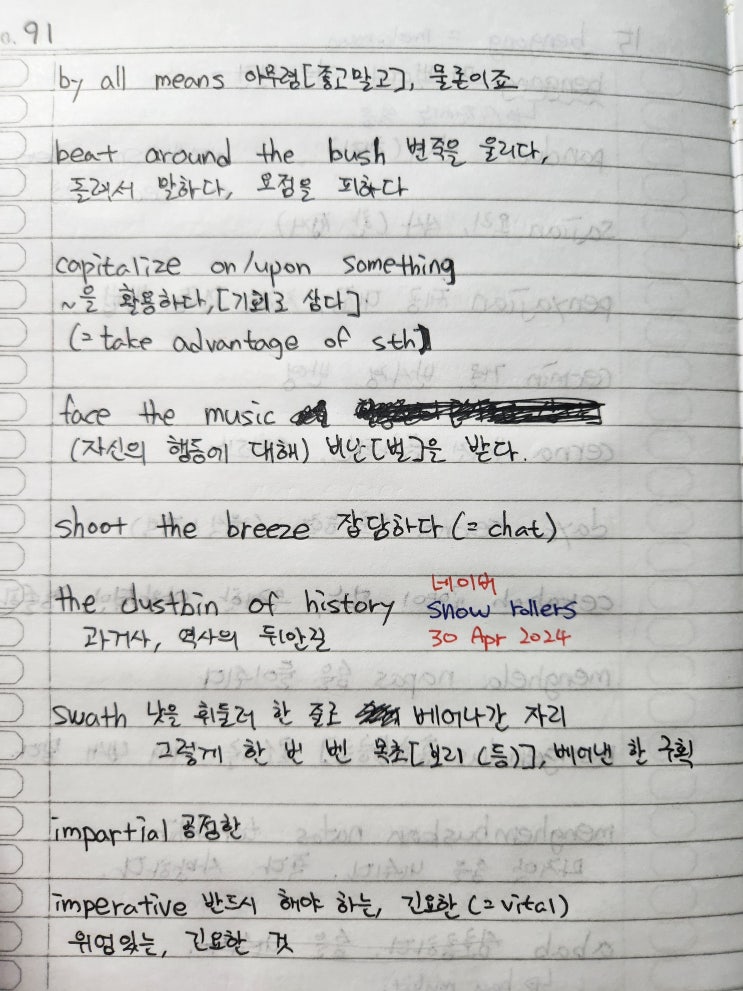 91
by all means 아무렴[좋고말고], 물론이죠
beat around the bush 변죽을 울리다,
돌려서 말하다, 요점을 피하다
capitalize on/upon something
~을 활용하다,[기회로 삼다]
(=take advantage of sth)
face the music
(자신의 행동에 대해) 비난[벌]을 받다.
shoot the breeze 잡담하다 (= chat)
the dustbin of history
과거사, 역사의 뒤안길
네이버
snow rollers
30 Apr 2024
swath 낫을 휘둘러 한 줄로 베어나간 자리
그렇게 한 번 벤 목초[보리 (등)], 베어낸 한 구획
impartial 공정한
imperative 반드시 해야 하는, 긴요한 (=vital)
위엄있는, 긴요한 것